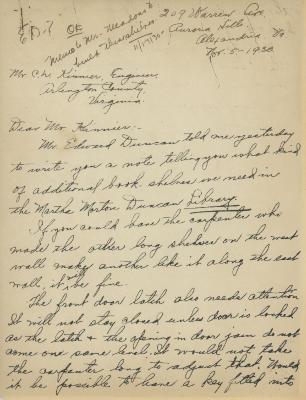 6 D-7 OK
Memo to Mr. Meadow to
11/17/30
209 Warren Ave.
Aurora Hills,
Alexandria Va
Nov. 5 - 1930.
Mr. C.L. Kinnier, Engineer,
Arlington County,
Virginia.
Dear Mr. Kinnier:-
Mr. Edward Duncan told me yesterday
to write you a note telling you what kind
of additional book shelves we need in
the Martha Morton Duncan Library.
If you could have the carpenter who
made the other long shelves on the west
wall make another like it along the east
wall, it will be fine.
The front door latch also needs attention.
It will not stay closed unless door is locked
as the latch & the opening in door jam do not
come one same level. It would not take
the carpenter long to adjust that. Would
it be possible to have a key fitted into